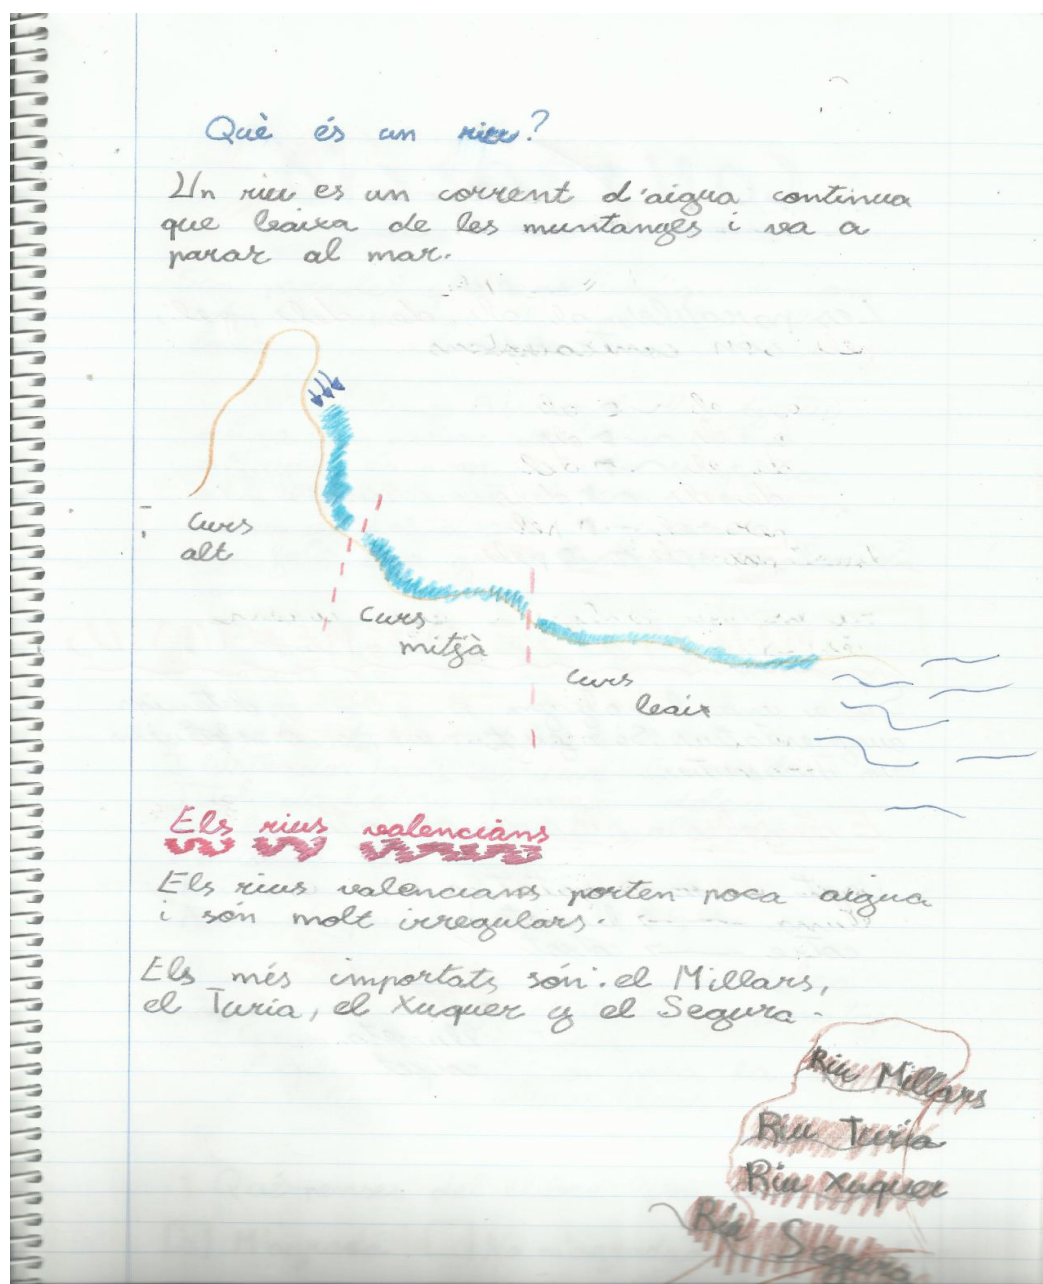 Què és un riu?
Un riu es un corrent d'aigua continua
que baixa de les muntanges i va a
parar al mar.
Curs
alt
Curs
mitjà
Curs
baix
Els rius valencians
Els rius valencians porten poca aigua
i són molt irregulars.
Els més importats són: el Millars,
el Turia, el Xuquer y el Segura.
Riu Millars
Riu Turia
Riu Xuquer
Riu Segura